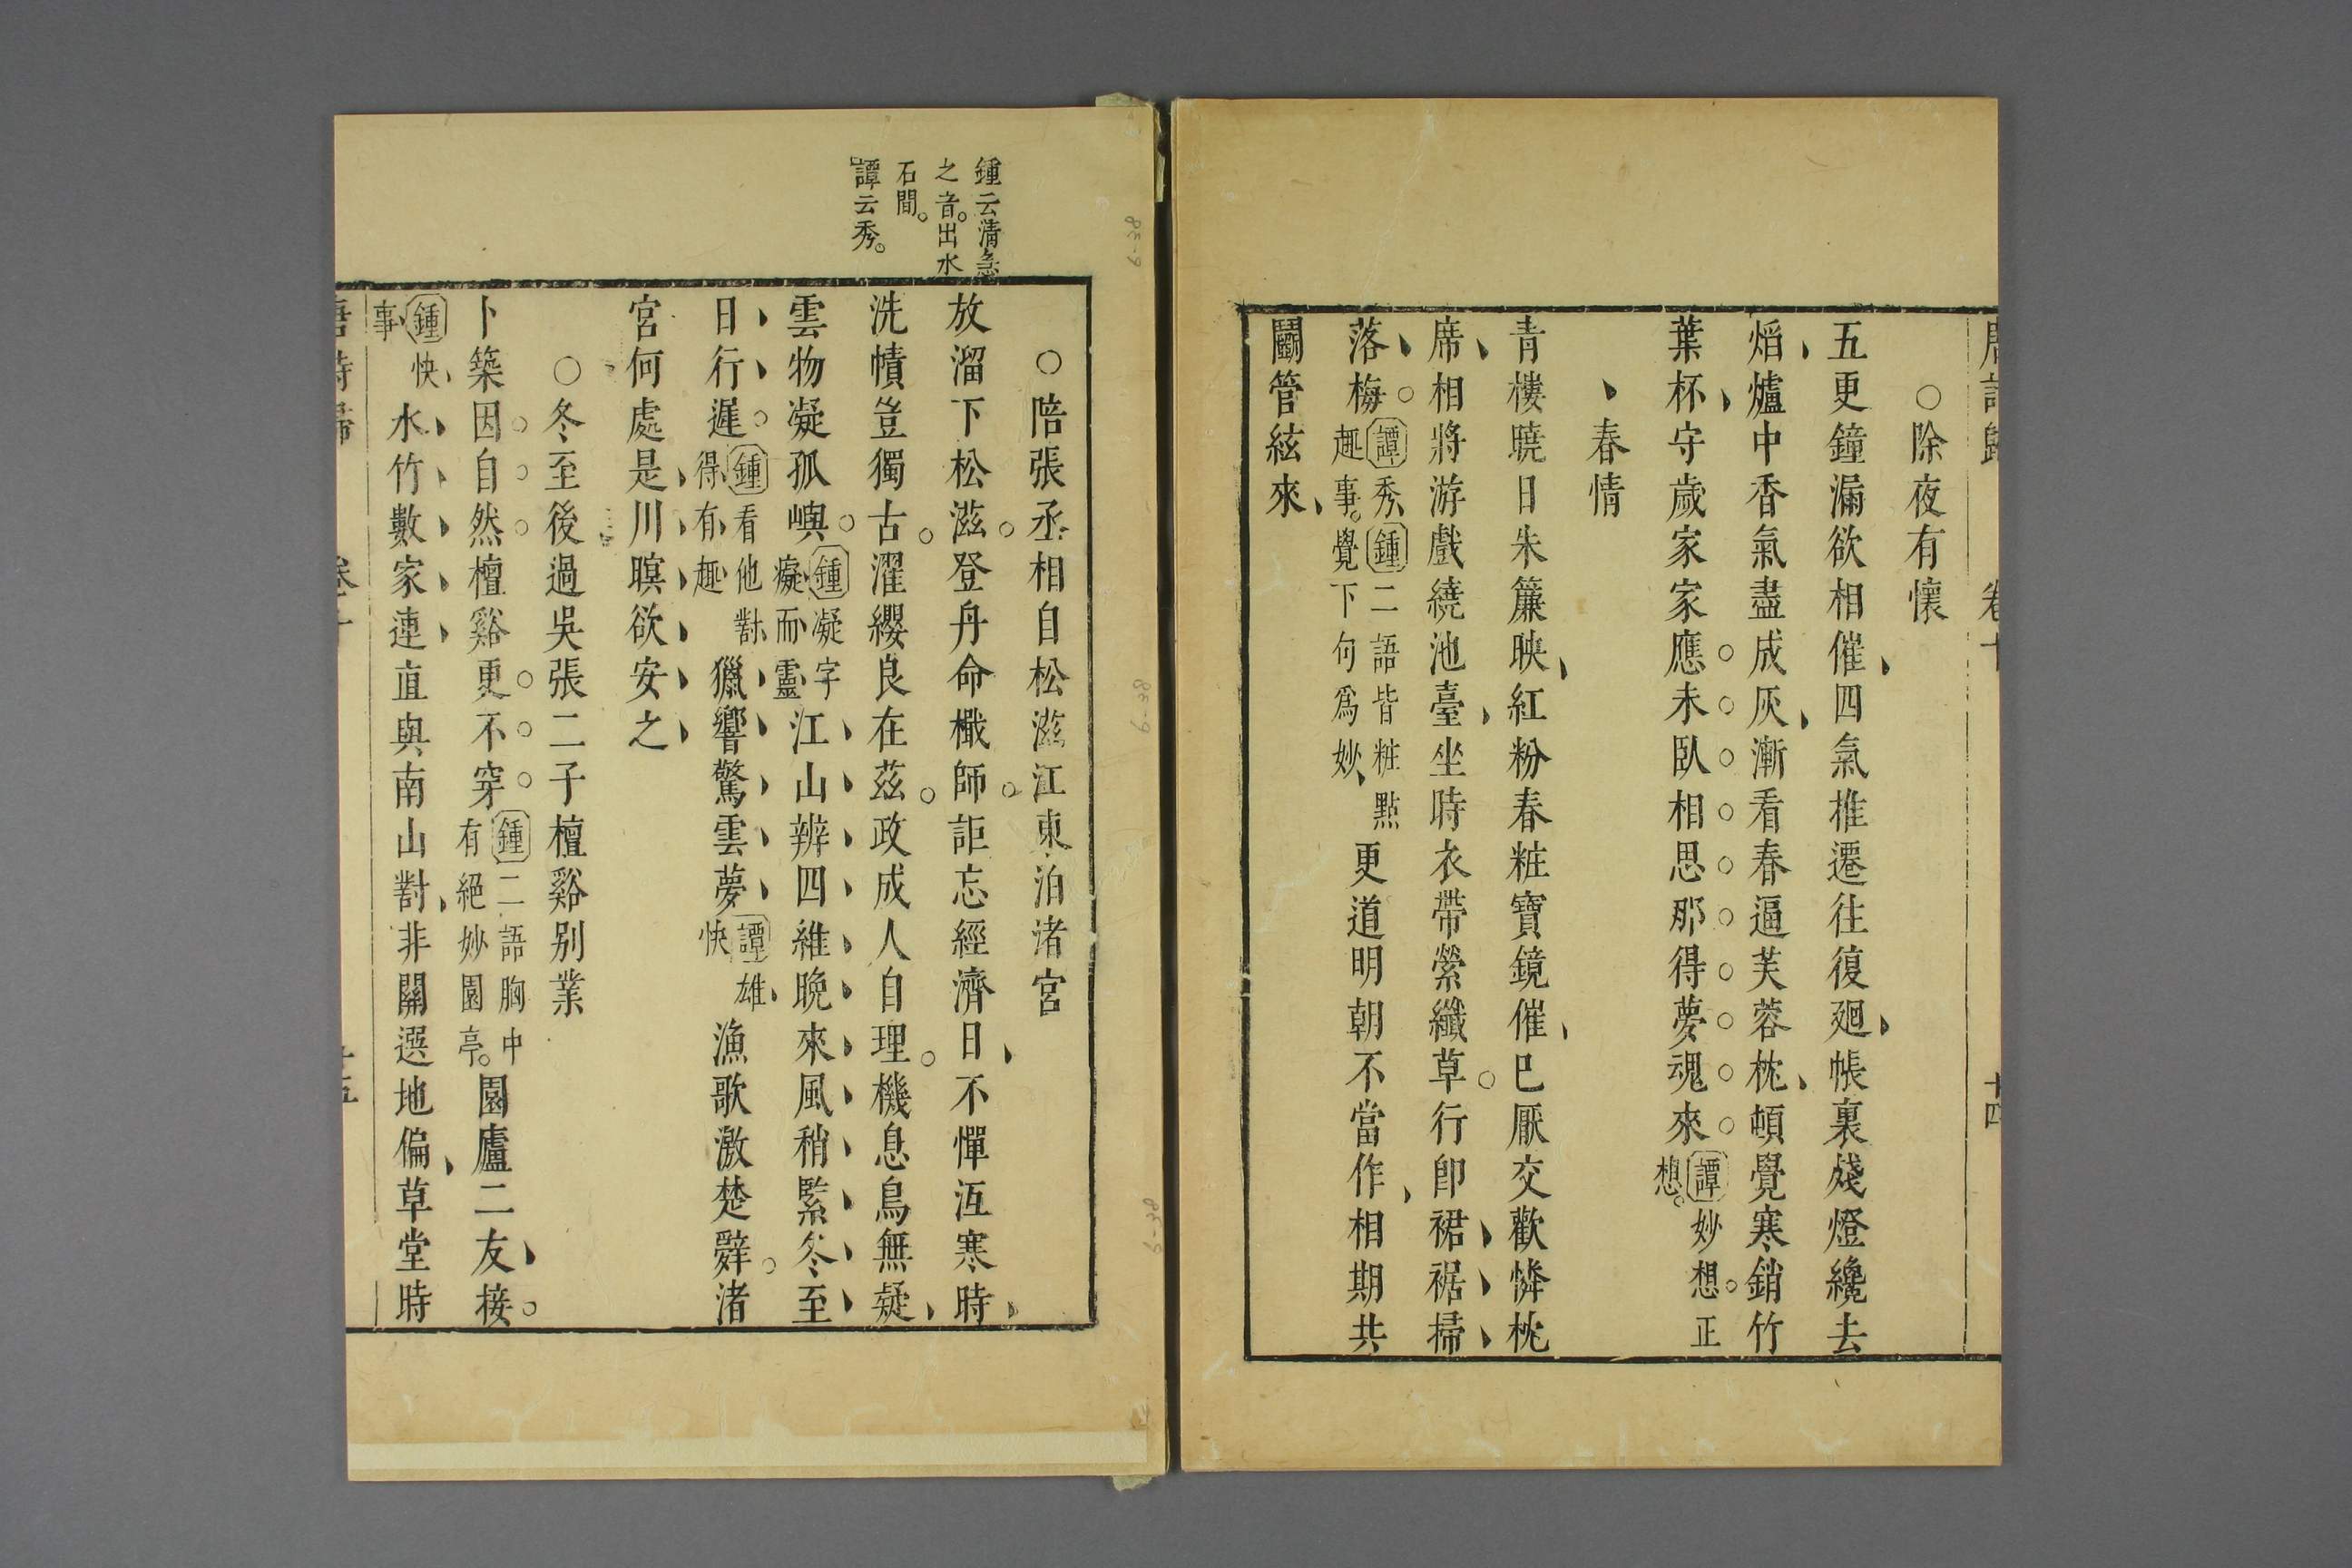 唐詩歸 卷十 十四
○除夜有懷
五更鐘漏欲相催四氣推遷往復廻帳裏殘燈纔去
熖爐中香氣盡成灰漸看春逼芙蓉枕頓覺寒銷竹
葉杯守歲家家應未臥相思那得夢魂來譚妙想正
想
春情
青樓曉日朱簾映紅粉春粧寶鏡催巳厭交歡憐枕
席相將游戲繞池臺坐時衣帶縈纖草行卽裙裾掃
落梅譚秀鍾二語皆粧點
趣事覺下句爲妙
更道明朝不當作相期共
鬭管絃來
鍾云清急
之音出水
石間
譚云秀
○陪張丞相自松滋江東泊渚宮
放溜下松滋登舟命檝師詎忘經濟日不憚沍寒時
洗幘豈獨古濯纓良在茲政成人自理機息鳥無疑
雲物凝孤嶼鍾凝字
癡而靈
江山辨四維晚來風稍緊冬至
日行遲鍾看他對
得有趣
獵響驚雲夢譚雄
快
漁歌激楚辭渚
宮何處是川暝欲安之
○冬至後過吳張二子檀谿别業
卜築因自然檀谿更不穿鍾二語胸中
有絕妙園亭
園廬二友接
鍾快
事
水竹數家連直與南山對非關選地偏草堂時
唐詩歸 卷十 十五